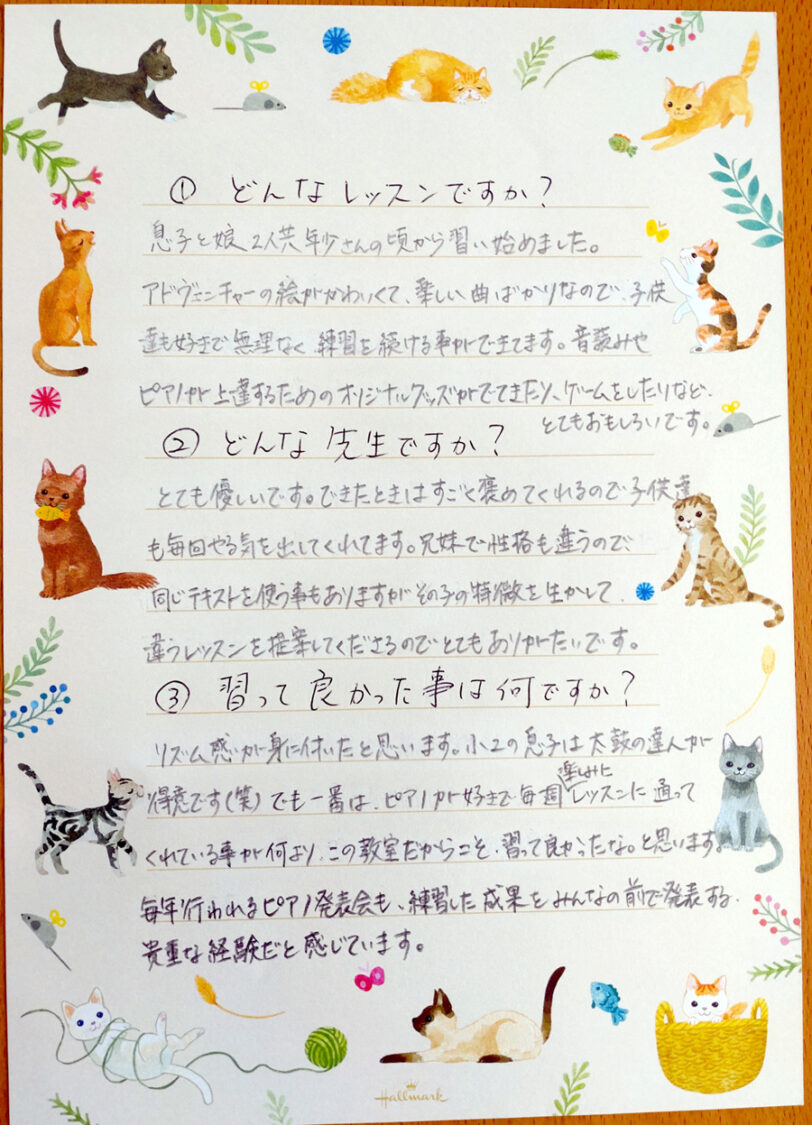 ① どんなレッスンですか？
息子と娘2人共年少さんの頃から習い始めました。
アドヴェンチャーの絵がかわいくて、楽しい曲ばかりなので、子供
達も好きで無理なく練習を続ける事ができてます。音読みや
ピアノが上達するためのオリジナルグッズがでてきたり、ゲームをしたりなど、
とてもおもしろいです。
② どんな先生ですか？
とても優しいです。できたときはすごく褒めてくれるので子供達
も毎回やる気を出してくれてます。兄妹で性格も違うので、
同じテキストを使う事もありますがその子の特徴を生かして、
違うレッスンを提案してくださるのでとてもありがたいです。
③ 習って良かった事は何ですか？
リズム感が身に付いたと思います。小2の息子は太鼓の達人が
得意です(笑)でも一番は、ピアノが好きで毎週楽しみにレッスンに通って
くれている事が何より、この教室だからこそ、習って良かったな。と思います。
毎年行われるピアノ発表会も、練習した成果をみんなの前で発表する、
貴重な経験だと感じています。
Hallmark